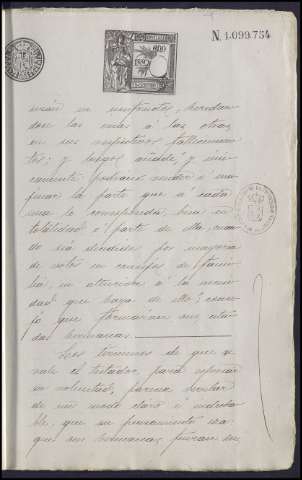 N. 1.099.754
en usufructo, heredan
dose las unas á las otras,
en sus respectivos fallecimien
tos; y luego añade, y uni
camente podrán vender ó ena
jenar la parte que á cada
una le corresponda, bien en
totalidad ó parte de ella, cuan
do sea decidido por mayoria
de votos en consejo de fami
lia, en atencion á la necesi
dad que haya de ello; conse
jo que formarian sus cita
das hermanas.
Los terminos de que se
vale el testador para expresar
su voluntad, parece revelar
de un modo claro é induda
ble, que su pensamiento era
que sus hermanas fueran su